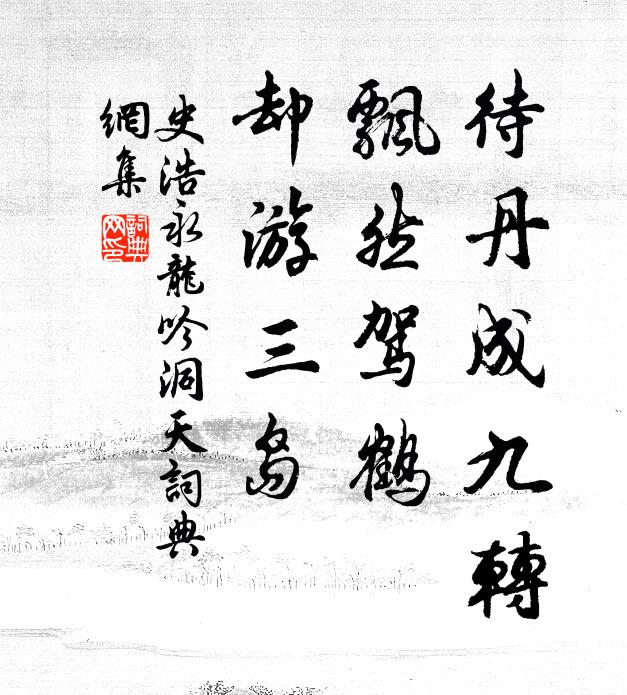 待丹成九轉
飄然駕鶴
却游三島
史浩永龍吟洞天詞典
網集
詞典
网印